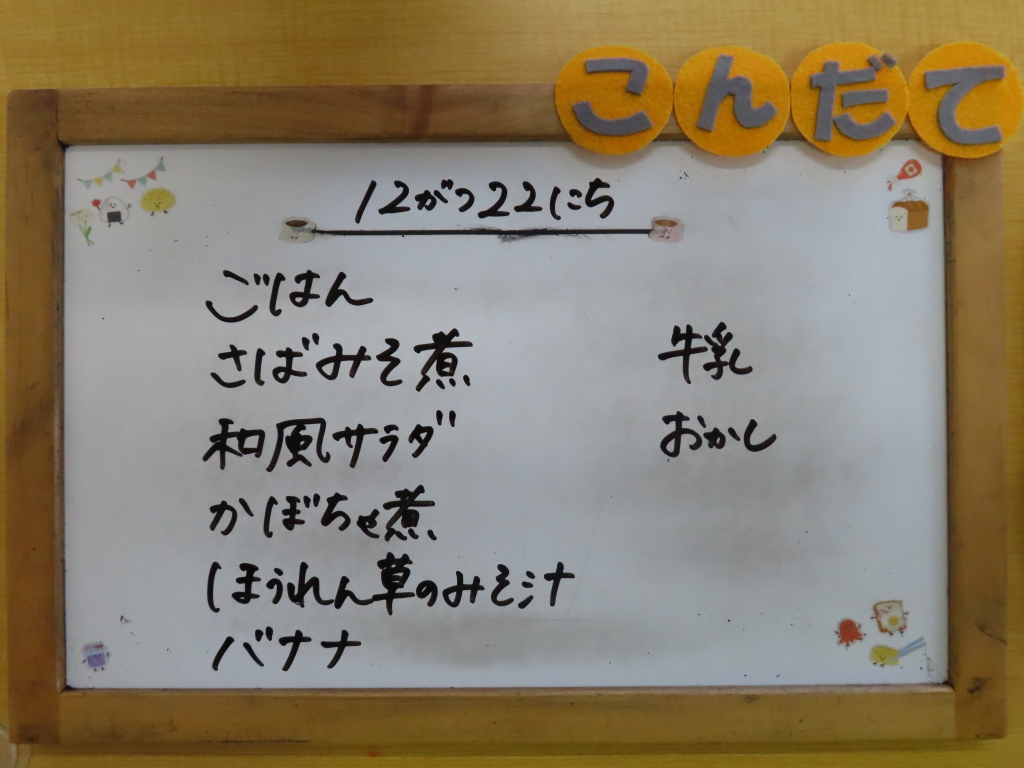 こんだて
12がつ22にち
ごはん
さばみそ煮
和風サラダ
かぼちゃ煮
ほうれん草のみそ汁
バナナ
牛乳
おかし